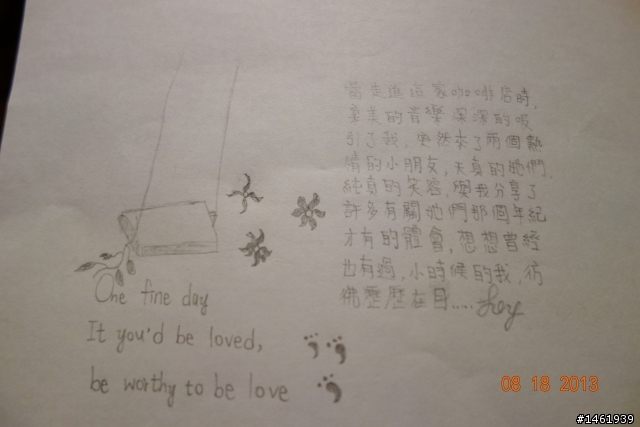 當走進這家咖啡店時,
柔美的音樂深深的吸
引了我,突然來了兩個熱
情的小朋友,天真的她們,
純真的笑容,和我分享了
許多有關她們那個年紀
才有的體會,想想曾經
也有過,小時候的我,彷
彿歷歷在目.....
One fine day
It you'd be loved,
be worthy to be love
08 18 2013
#1461939